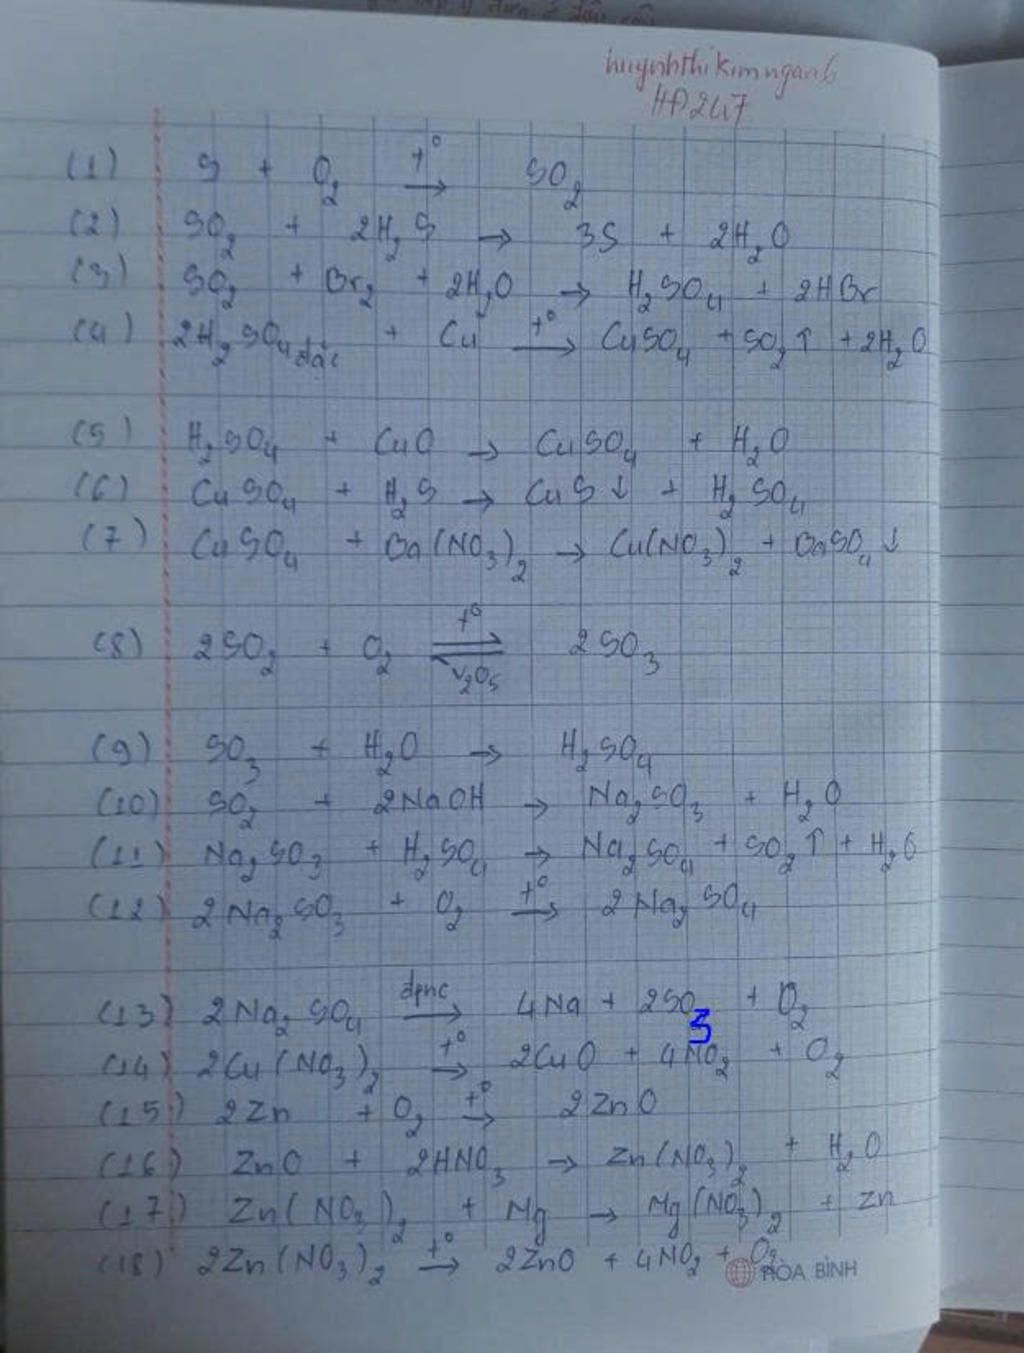 huynhthikimngan6
HĐ247
(1) S + O₂ →(t°) SO₂
(2) SO₂ + 2H₂S → 3S + 2H₂O
(3) SO₂ + Br₂ + 2H₂O → H₂SO₄ + 2HBr
(4) 2H₂SO₄ đặc + Cu →(t°) CuSO₄ + SO₂↑ + 2H₂O
(5) H₂SO₄ + CuO → CuSO₄ + H₂O
(6) CuSO₄ + H₂S → CuS↓ + H₂SO₄
(7) CuSO₄ + Ba(NO₃)₂ → Cu(NO₃)₂ + BaSO₄↓
(8) 2SO₂ + O₂ ⇌(t°, V₂O₅) 2SO₃
(9) SO₃ + H₂O → H₂SO₄
(10) SO₂ + 2NaOH → Na₂SO₃ + H₂O
(11) Na₂SO₃ + H₂SO₄ → Na₂SO₄ + SO₂↑ + H₂O
(12) 2Na₂SO₃ + O₂ →(t°) 2Na₂SO₄
(13) 2Na₂SO₄ →(đpnc) 4Na + 2SO₃ + O₂
(14) 2Cu(NO₃)₂ →(t°) 2CuO + 4NO₂ + O₂
(15) 2Zn + O₂ →(t°) 2ZnO
(16) ZnO + 2HNO₃ → Zn(NO₃)₂ + H₂O
(17) Zn(NO₃)₂ + Mg → Mg(NO₃)₂ + Zn
(18) 2Zn(NO₃)₂ →(t°) 2ZnO + 4NO₂ + O₂
HÒA BÌNH